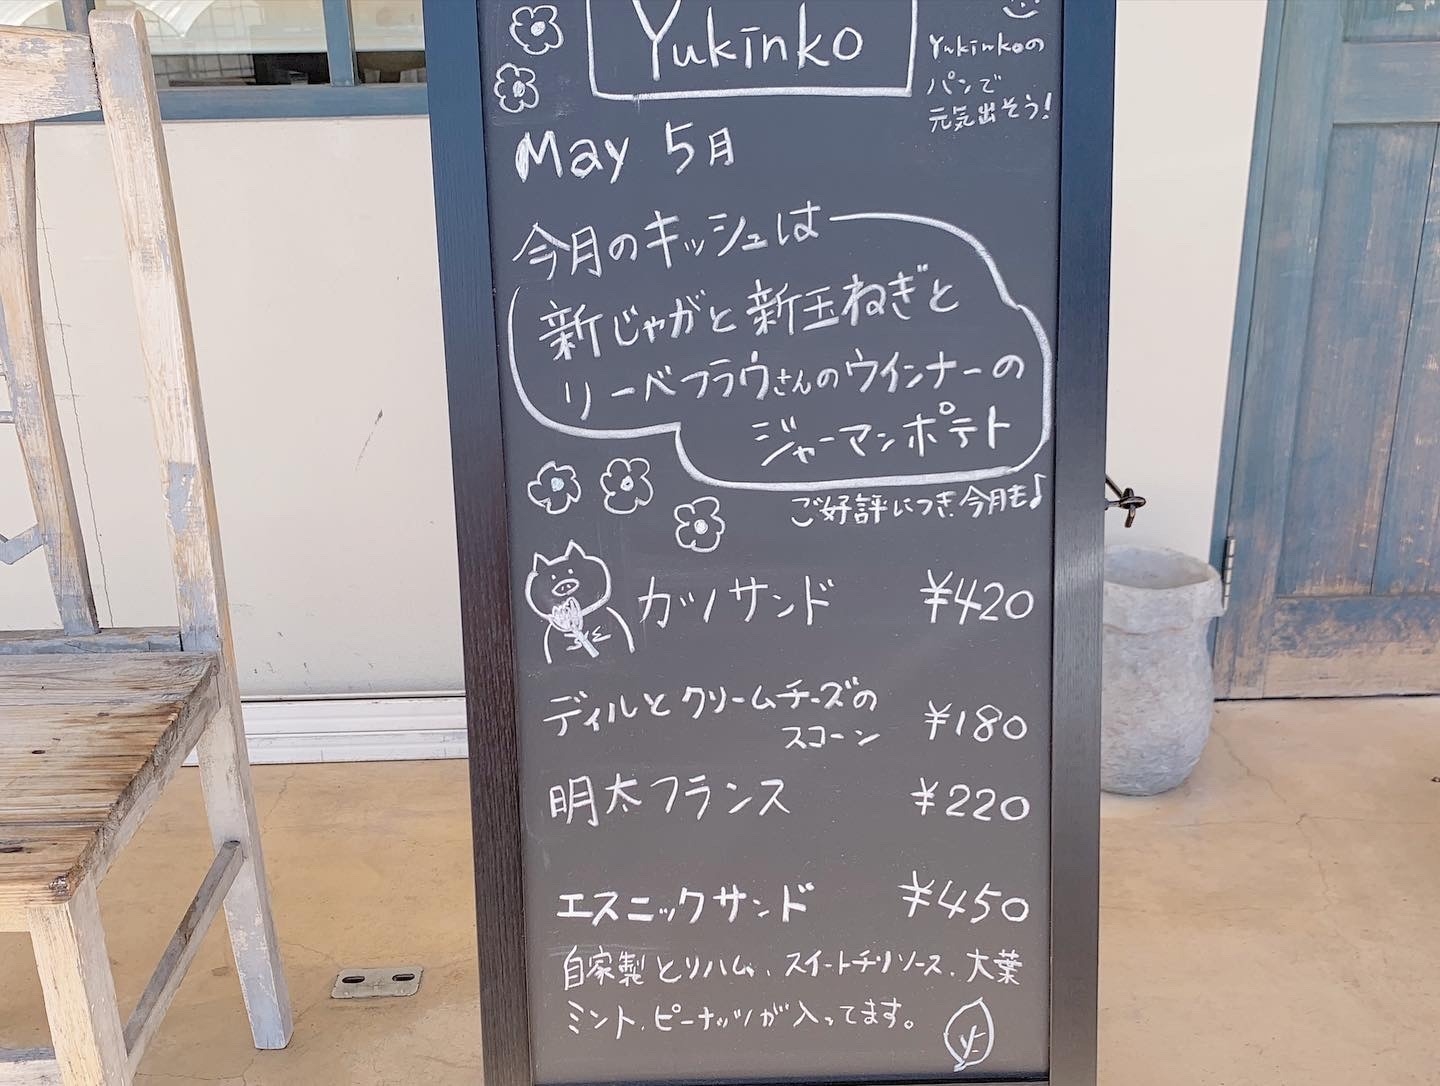 Yukinko
Yukinkoの
パンで
元気出そう!
May 5月
今月のキッシュは
新じゃがと新玉ねぎと
リーベフラウさんのウインナーの
ジャーマンポテト
ご好評につき今月も♪
カツサンド ¥420
ディルとクリームチーズの
スコーン ¥180
明太フランス ¥220
エスニックサンド ¥450
自家製とりハム、スイートチリソース、大葉
ミント、ピーナッツが入ってます。